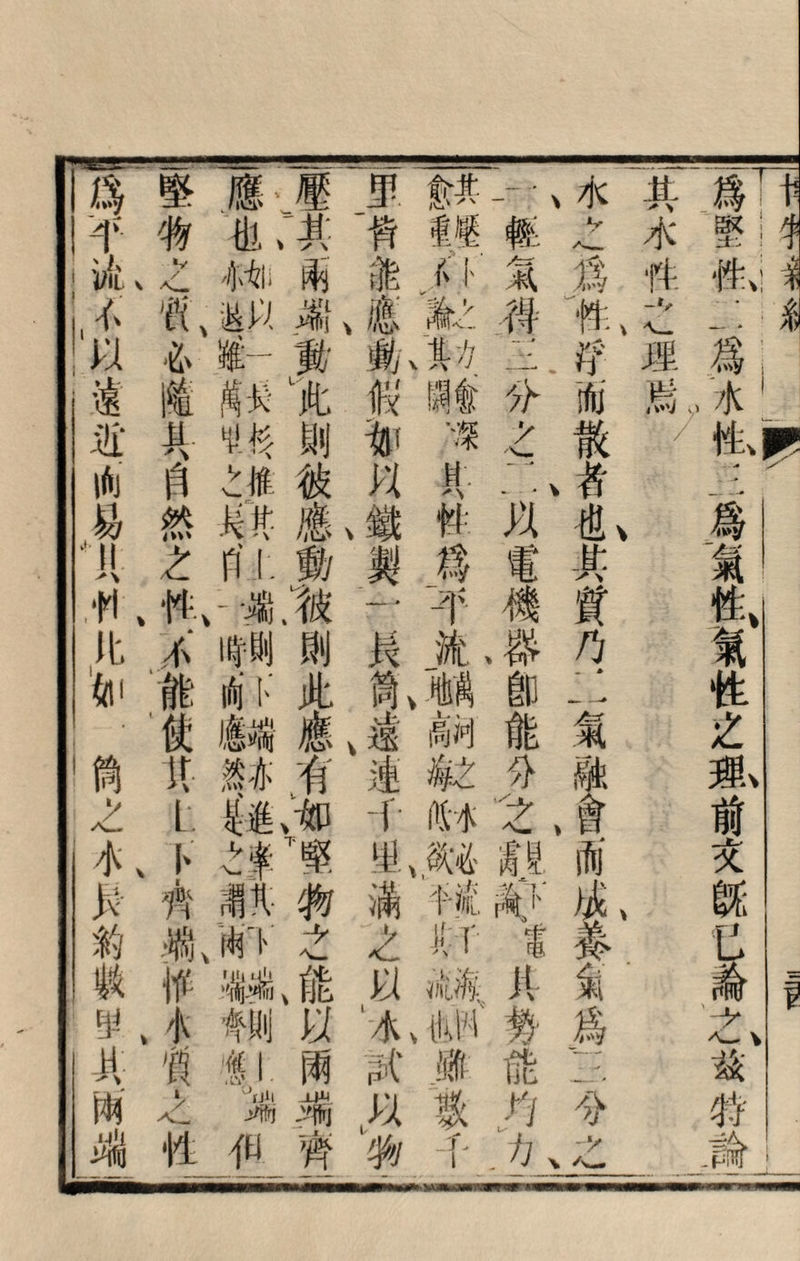 博物新編
爲堅性、二爲水性、三爲氣性、氣性之理、前文旣已論之、兹特論
其水性之理焉。
水之爲性、浮而散者也、其質乃二氣融會而成、養氣爲三分之
一、輕氣得三分之二、以電機器卽能分之、見下電氣論其勢能均力、
其壓下之力愈深愈重不論其闊其性爲平流、萬河之水必流于海因地高海低欲平其流也雖數千
里皆能應動、假如以鐵製一長筒、遠連千里、滿之以水、試以物
壓其兩端、動此則彼應、動彼則此應、有如堅物之能以兩端齊
應也、如以一長杉推其上端則下端亦進、牽其下端、則上端亦退、雖萬里之長、自一時而應、然是之謂兩端齊應。但
堅物之質、必隨其自然之性、不能使其上下齊端、惟水質之性
爲平流、不以遠近而易其性、比如 筒之水、長約數里、其兩端